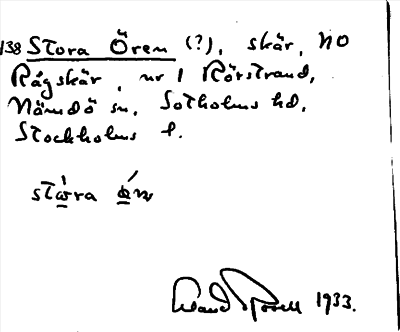 138 Stora Ören (?), skär, NO
Rågskär, nr 1 Rörstrand,
Nämdö sn, Sotholms hd,
Stockholms l.
1933.